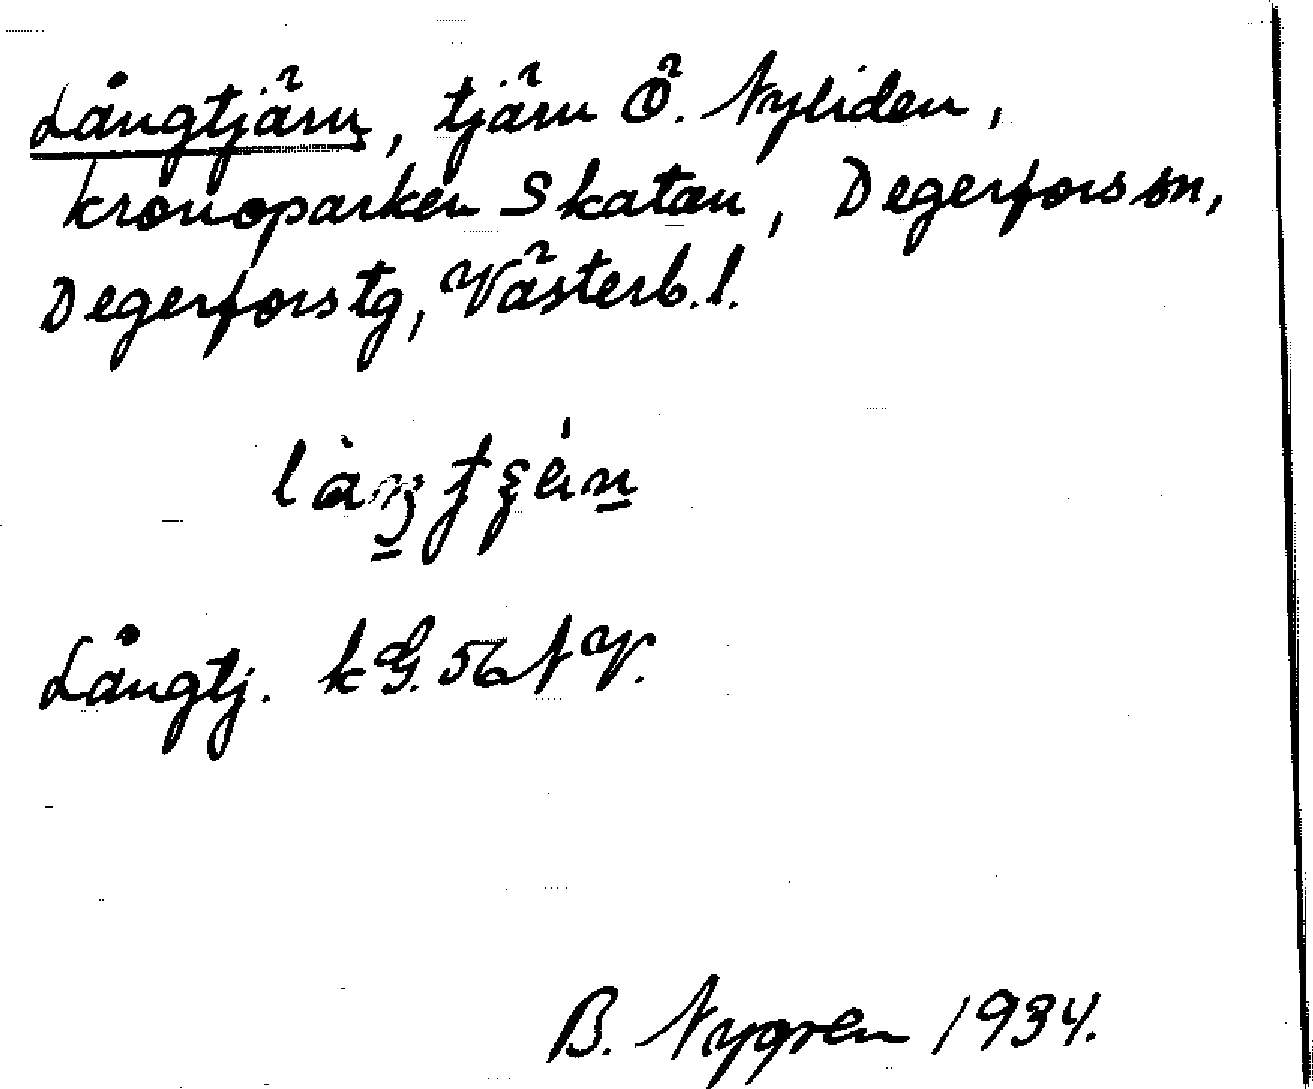 Långtjärn, tjärn Ö. Nyliden,
kronoparken Skatan, Degerfors sn,
Degerfors tg, Västerb. l.
Långtj. k G. 56 NV.
B. Nygren 1934.